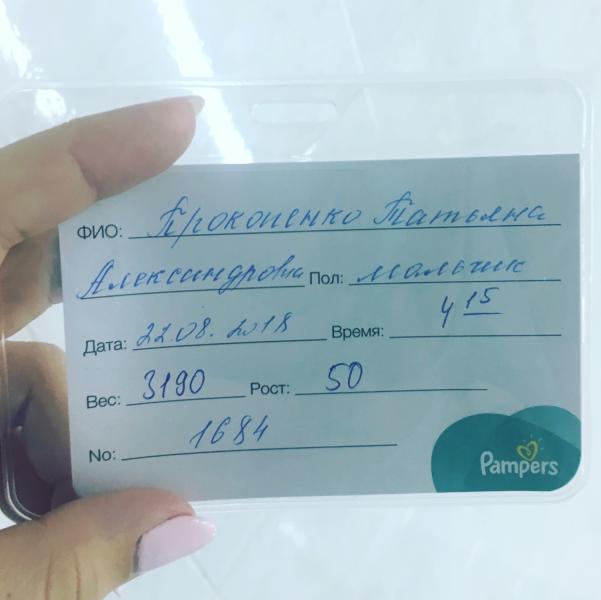 ФИО: Прокопенко Татьяна
Александровна Пол: мальчик
Дата: 22.08.2018 Время: 4 15
Вес: 3190 Рост: 50
No: 1684
Pampers